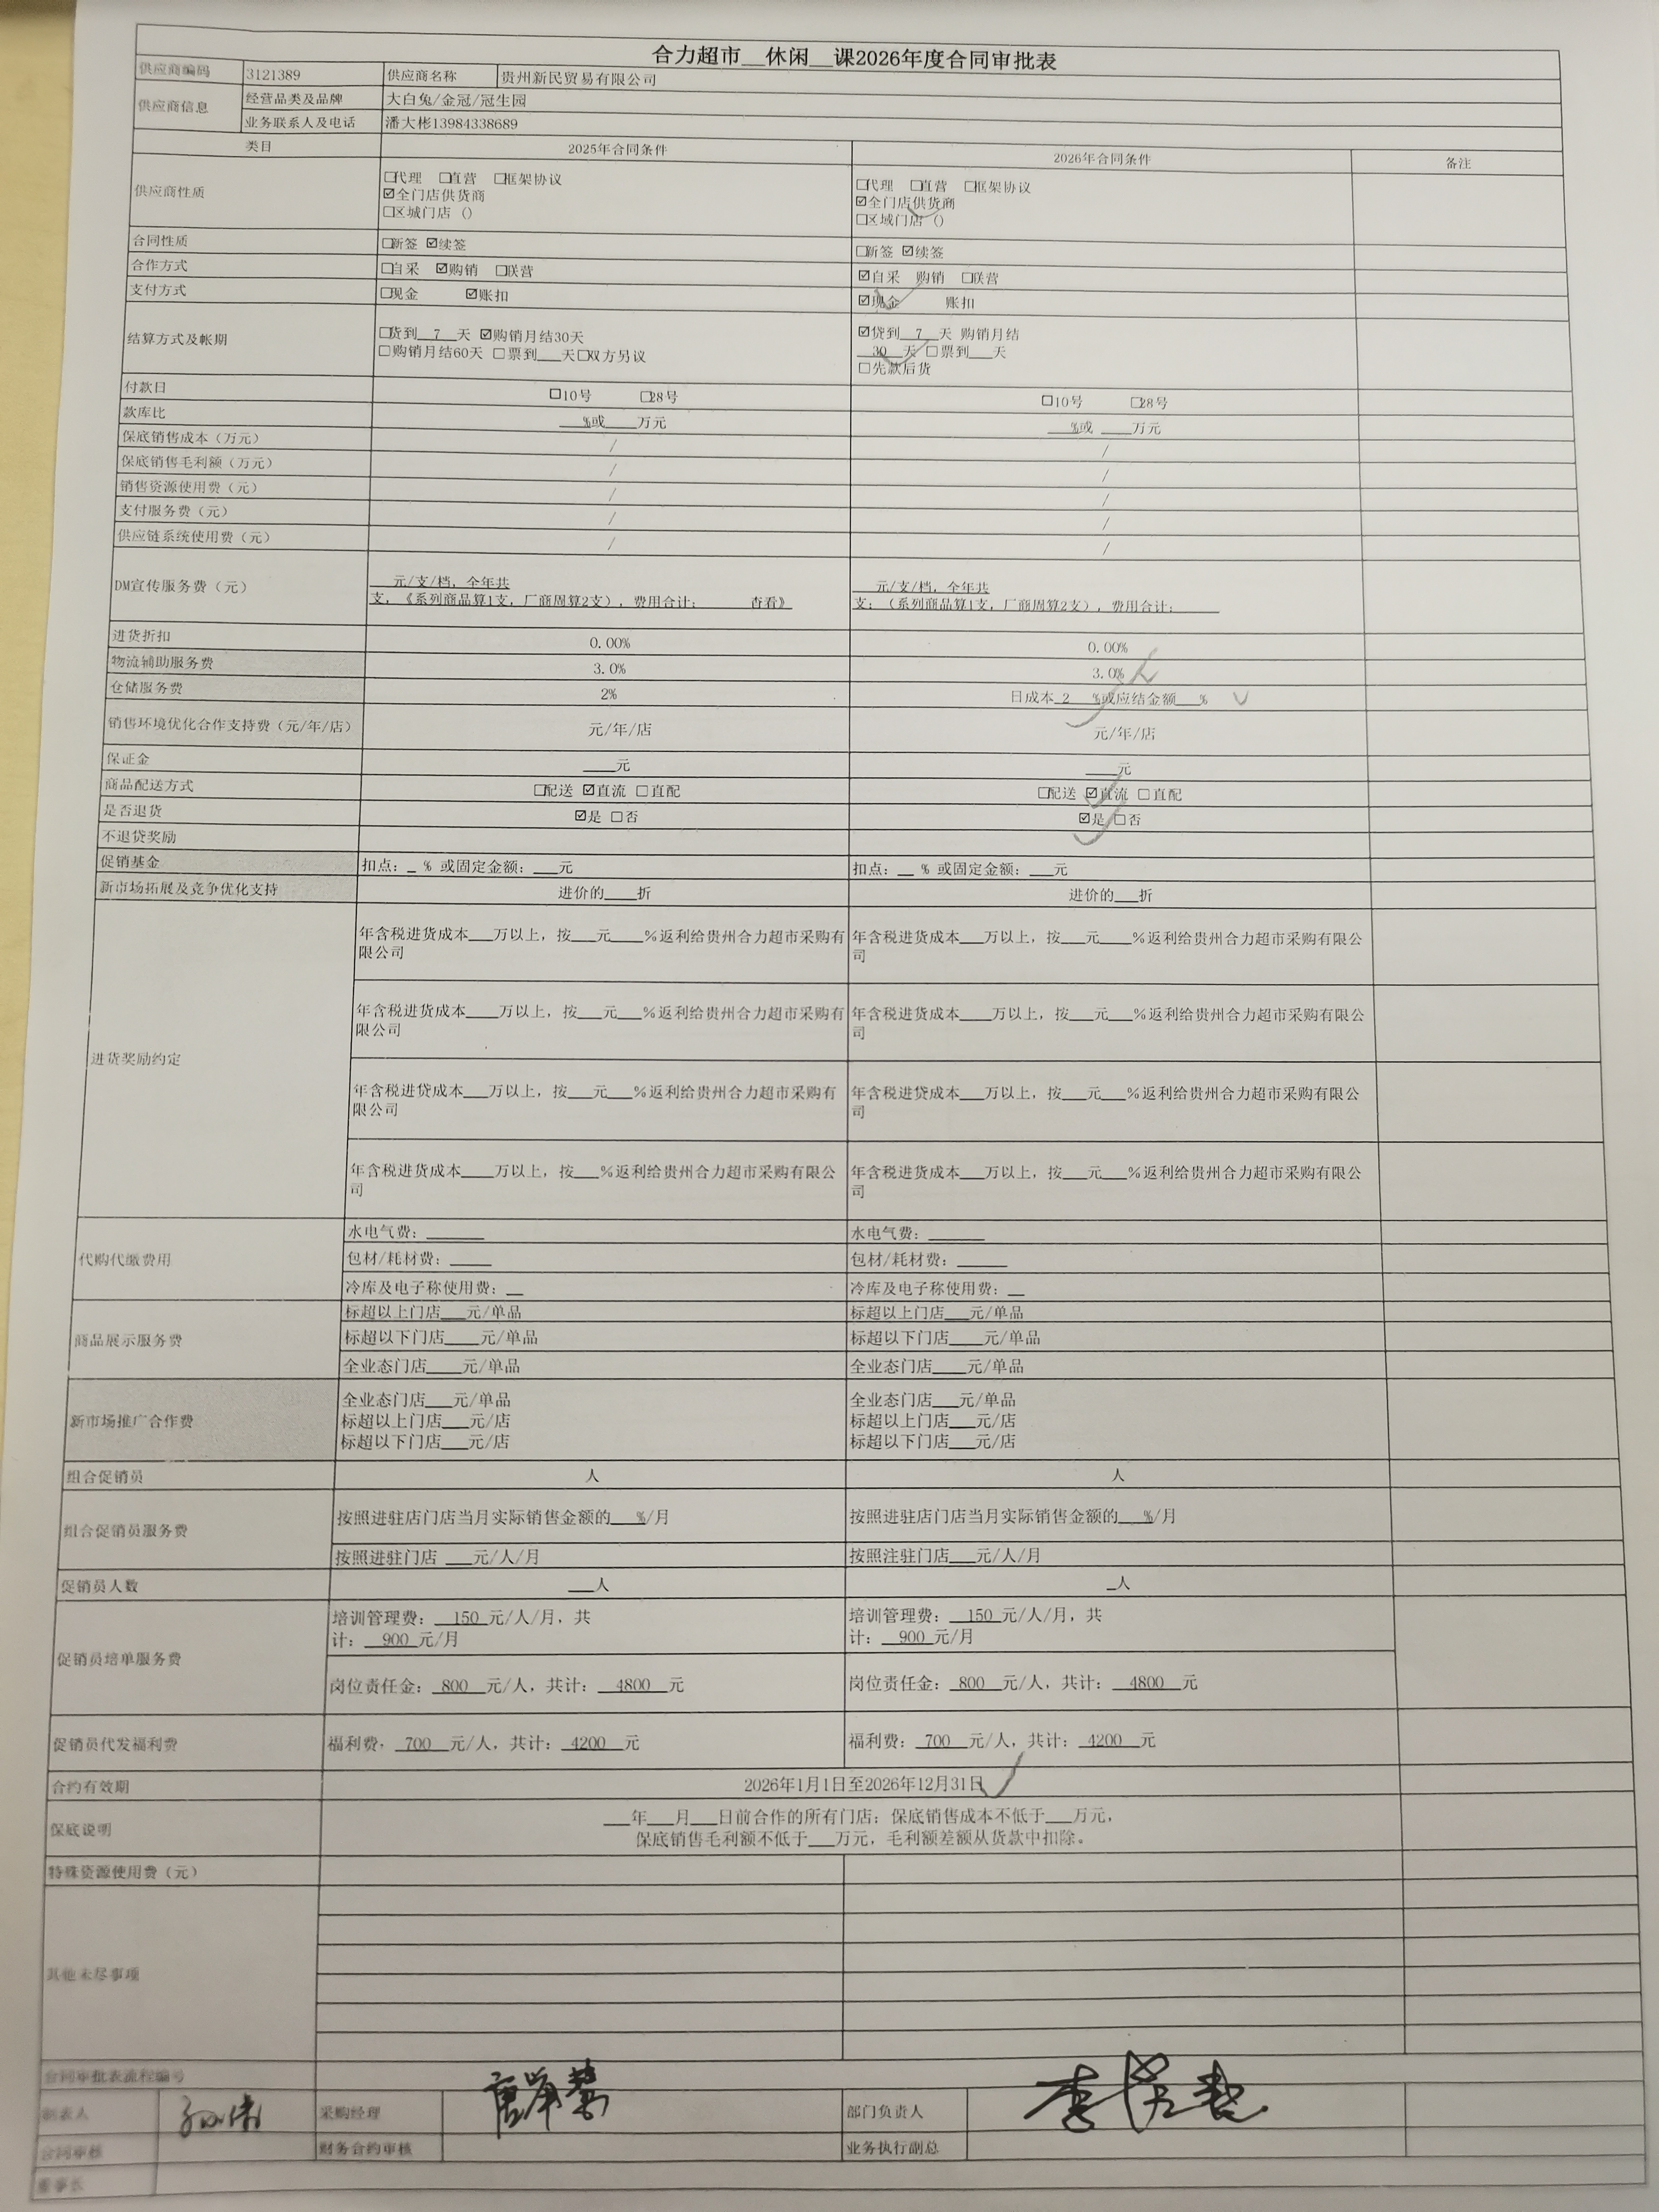 合力超市__休闲__课2026年度合同审批表
供应商编码 3121389 供应商名称 贵州新民贸易有限公司
供应商信息 经营品类及品牌 大白兔/金冠/冠生园
业务联系人及电话 潘大彬13984338689
类目 2025年合同条件 2026年合同条件 备注
供应商性质 □代理 □直营 □框架协议 □代理 □直营 □框架协议
☑全门店供货商 ☑全门店供货商
□区城门店（） □区域门店（）
合同性质 □新签 ☑续签 □新签 ☑续签
合作方式 □自采 ☑购销 □联营 ☑自采 购销 □联营
支付方式 □现金 ☑账扣 ☑现金 账扣
结算方式及帐期 □货到__7__天 ☑购销月结30天 ☑贷到__7__天 购销月结
□购销月结60天 □票到___天□双方另议 __30__天 □票到___天
□先款后货
付款日 □10号 □28号 □10号 □28号
款库比 ___%或____万元 ___%或 ____万元
保底销售成本（万元） / /
保底销售毛利额（万元） / /
销售资源使用费（元） / /
支付服务费（元） / /
供应链系统使用费（元） / /
DM宣传服务费（元） ___元/支/档，全年共 ___元/支/档，全年共
支，《系列商品算1支，厂商周算2支），费用合计：______杳看》 支；（系列商品算1支，厂商周算2支），费用合计：_____
进货折扣 0.00% 0.00%
物流辅助服务费 3.0% 3.0%
仓储服务费 2% 日成本_2___%或应结金额___%
销售环境优化合作支持费（元/年/店） 元/年/店 元/年/店
保证金 ____元 ____元
商品配送方式 □配送 ☑直流 □直配 □配送 ☑直流 □直配
是否退货 ☑是 □否 ☑是 □否
不退贷奖励
促销基金 扣点：_ % 或固定金额：___元 扣点：__ % 或固定金额：___元
新市场拓展及竞争优化支持 进价的____折 进价的___折
进货奖励约定 年含税进货成本___万以上，按___元____%返利给贵州合力超市采购有 年含税进货成本___万以上，按___元____%返利给贵州合力超市采购有限公
限公司 司
年含税进货成本____万以上，按___元___%返利给贵州合力超市采购有 年含税进货成本____万以上，按___元___%返利给贵州合力超市采购有限公
限公司 司
年含税进贷成本___万以上，按___元___%返利给贵州合力超市采购有 年含税进贷成本___万以上，按___元___%返利给贵州合力超市采购有限公
限公司 司
年含税进货成本____万以上，按___%返利给贵州合力超市采购有限公 年含税进货成本___万以上，按___元___%返利给贵州合力超市采购有限公
司 司
代购代缴费用 水电气费：_______ 水电气费：_______
包材/耗材费：_____ 包材/耗材费：______
冷库及电子称使用费：__ 冷库及电子称使用费：__
商品展示服务费 标超以上门店___元/单品 标超以上门店___元/单品
标超以下门店____元/单品 标超以下门店____元/单品
全业态门店____元/单品 全业态门店____元/单品
新市场推广合作费 全业态门店___元/单品 全业态门店___元/单品
标超以上门店___元/店 标超以上门店___元/店
标超以下门店___元/店 标超以下门店___元/店
组合促销员 人 人
组合促销员服务费 按照进驻店门店当月实际销售金额的___%/月 按照进驻店门店当月实际销售金额的___%/月
按照进驻门店 ___元/人/月 按照注驻门店___元/人/月
促销员人数 ___人 _人
促销员培单服务费 培训管理费：__150_元/人/月，共 培训管理费：__150_元/人/月，共
计：__900_元/月 计：__900_元/月
岗位责任金：_800__元/人，共计：__4800__元 岗位责任金：_800__元/人，共计：__4800__元
促销员代发福利费 福利费，_700__元/人，共计：_4200__元 福利费：_700__元/人，共计：_4200__元
合约有效期 2026年1月1日至2026年12月31日
保底说明 ___年___月___日前合作的所有门店；保底销售成本不低于___万元，
保底销售毛利额不低于___万元，毛利额差额从货款中扣除。
特殊资源使用费（元）
其他未尽事项
合同审批表流程编号
制表人 采购经理 部门负责人
合同审核 财务合约审核 业务执行副总
董事长